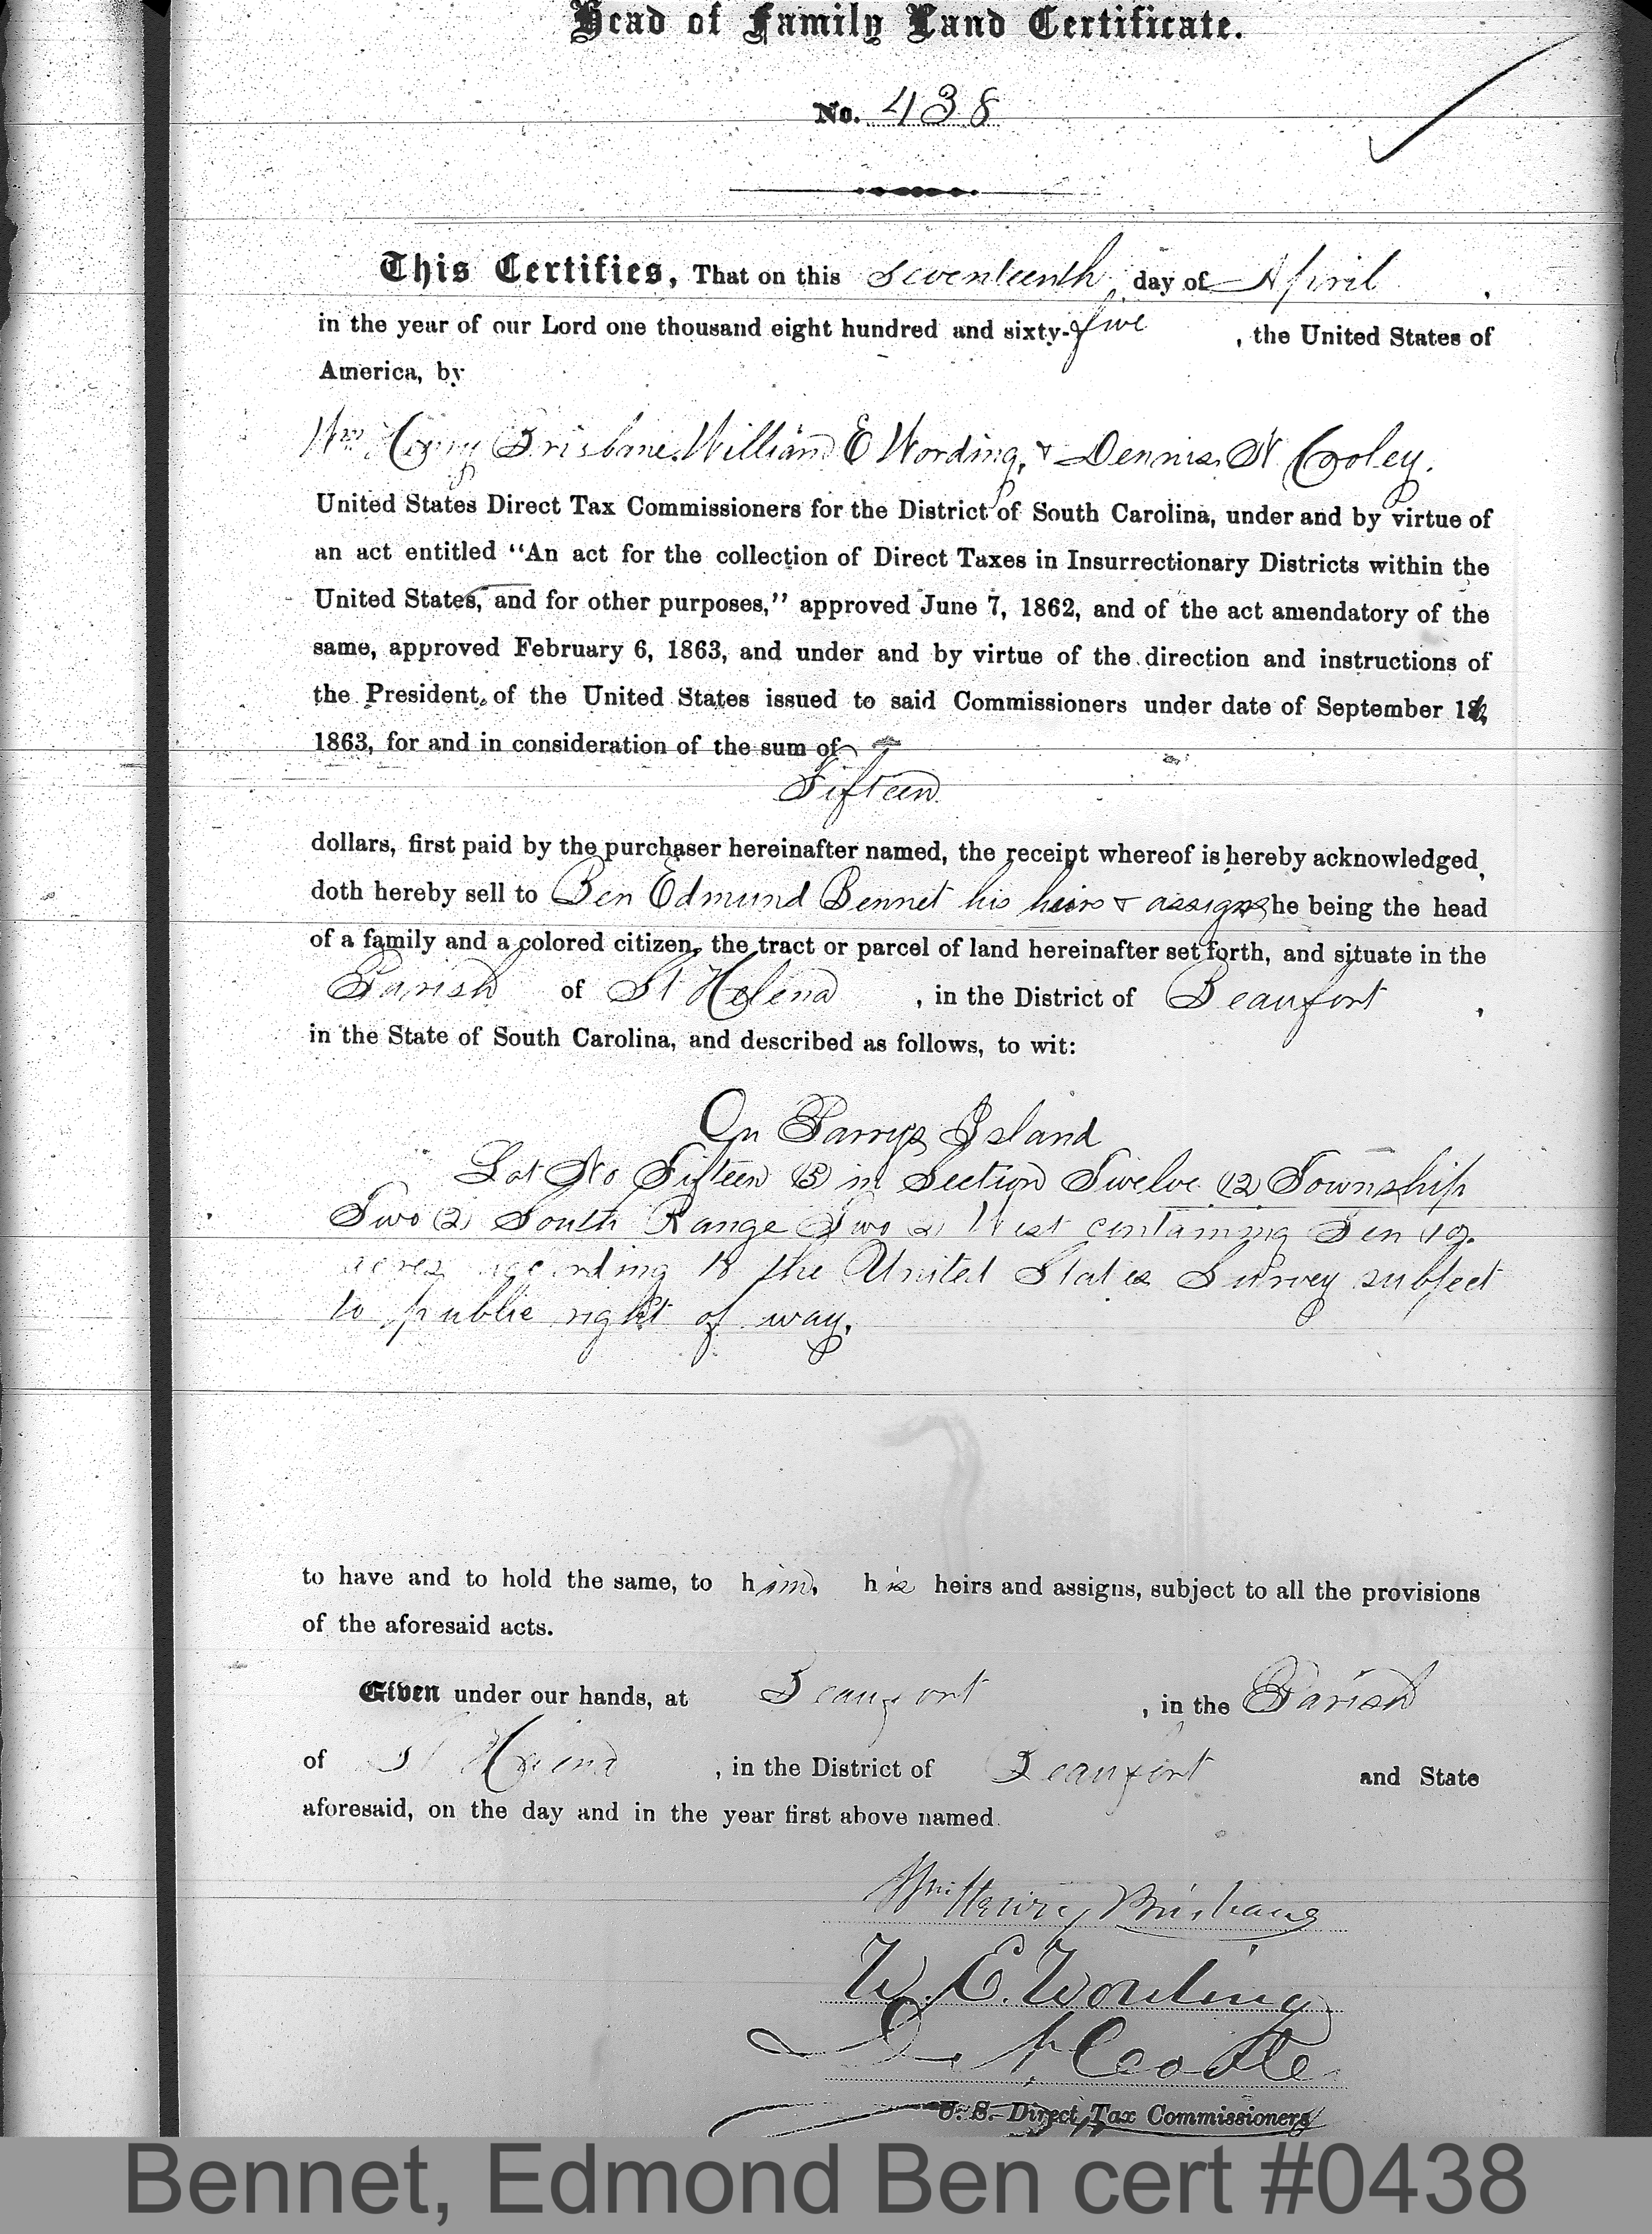 Head of Family Land Certificate.
No. 438
This Certifies, That on this seventeenth day of April ,
in the year of our Lord one thousand eight hundred and sixty-five , the United States of
America, by
Wm Henry Brisbane. William E Wording, & Dennis N Cooley.
United States Direct Tax Commissioners for the District of South Carolina, under and by virtue of
an act entitled "An act for the collection of Direct Taxes in Insurrectionary Districts within the
United States, and for other purposes," approved June 7, 1862, and of the act amendatory of the
same, approved February 6, 1863, and under and by virtue of the direction and instructions of
the President of the United States issued to said Commissioners under date of September
1863, for and in consideration of the sum of
Fifteen
dollars, first paid by the purchaser hereinafter named, the receipt whereof is hereby acknowledged,
doth hereby sell to Ben Edmund Bennet his heirs & assigns he being the head
of a family and a colored citizen, the tract or parcel of land hereinafter set forth, and situate in the
Parish of St Helena , in the District of Beaufort ,
in the State of South Carolina, and described as follows, to wit:
On Parrys Island
Lot No Fifteen (15) in Section Twelve (12) Township
Two (2) South Range Two (2) West containing Ten (10)
acres according to the United States Survey subject
to public right of way.
to have and to hold the same, to him, his heirs and assigns, subject to all the provisions
of the aforesaid acts.
Given under our hands, at Beaufort , in the Parish
of St Helena , in the District of Beaufort and State
aforesaid, on the day and in the year first above named.
Wm Henry Brisbane
W. E. Wording
D. N. Cooley
U. S. Direct Tax Commissioners
Bennet, Edmond Ben cert #0438